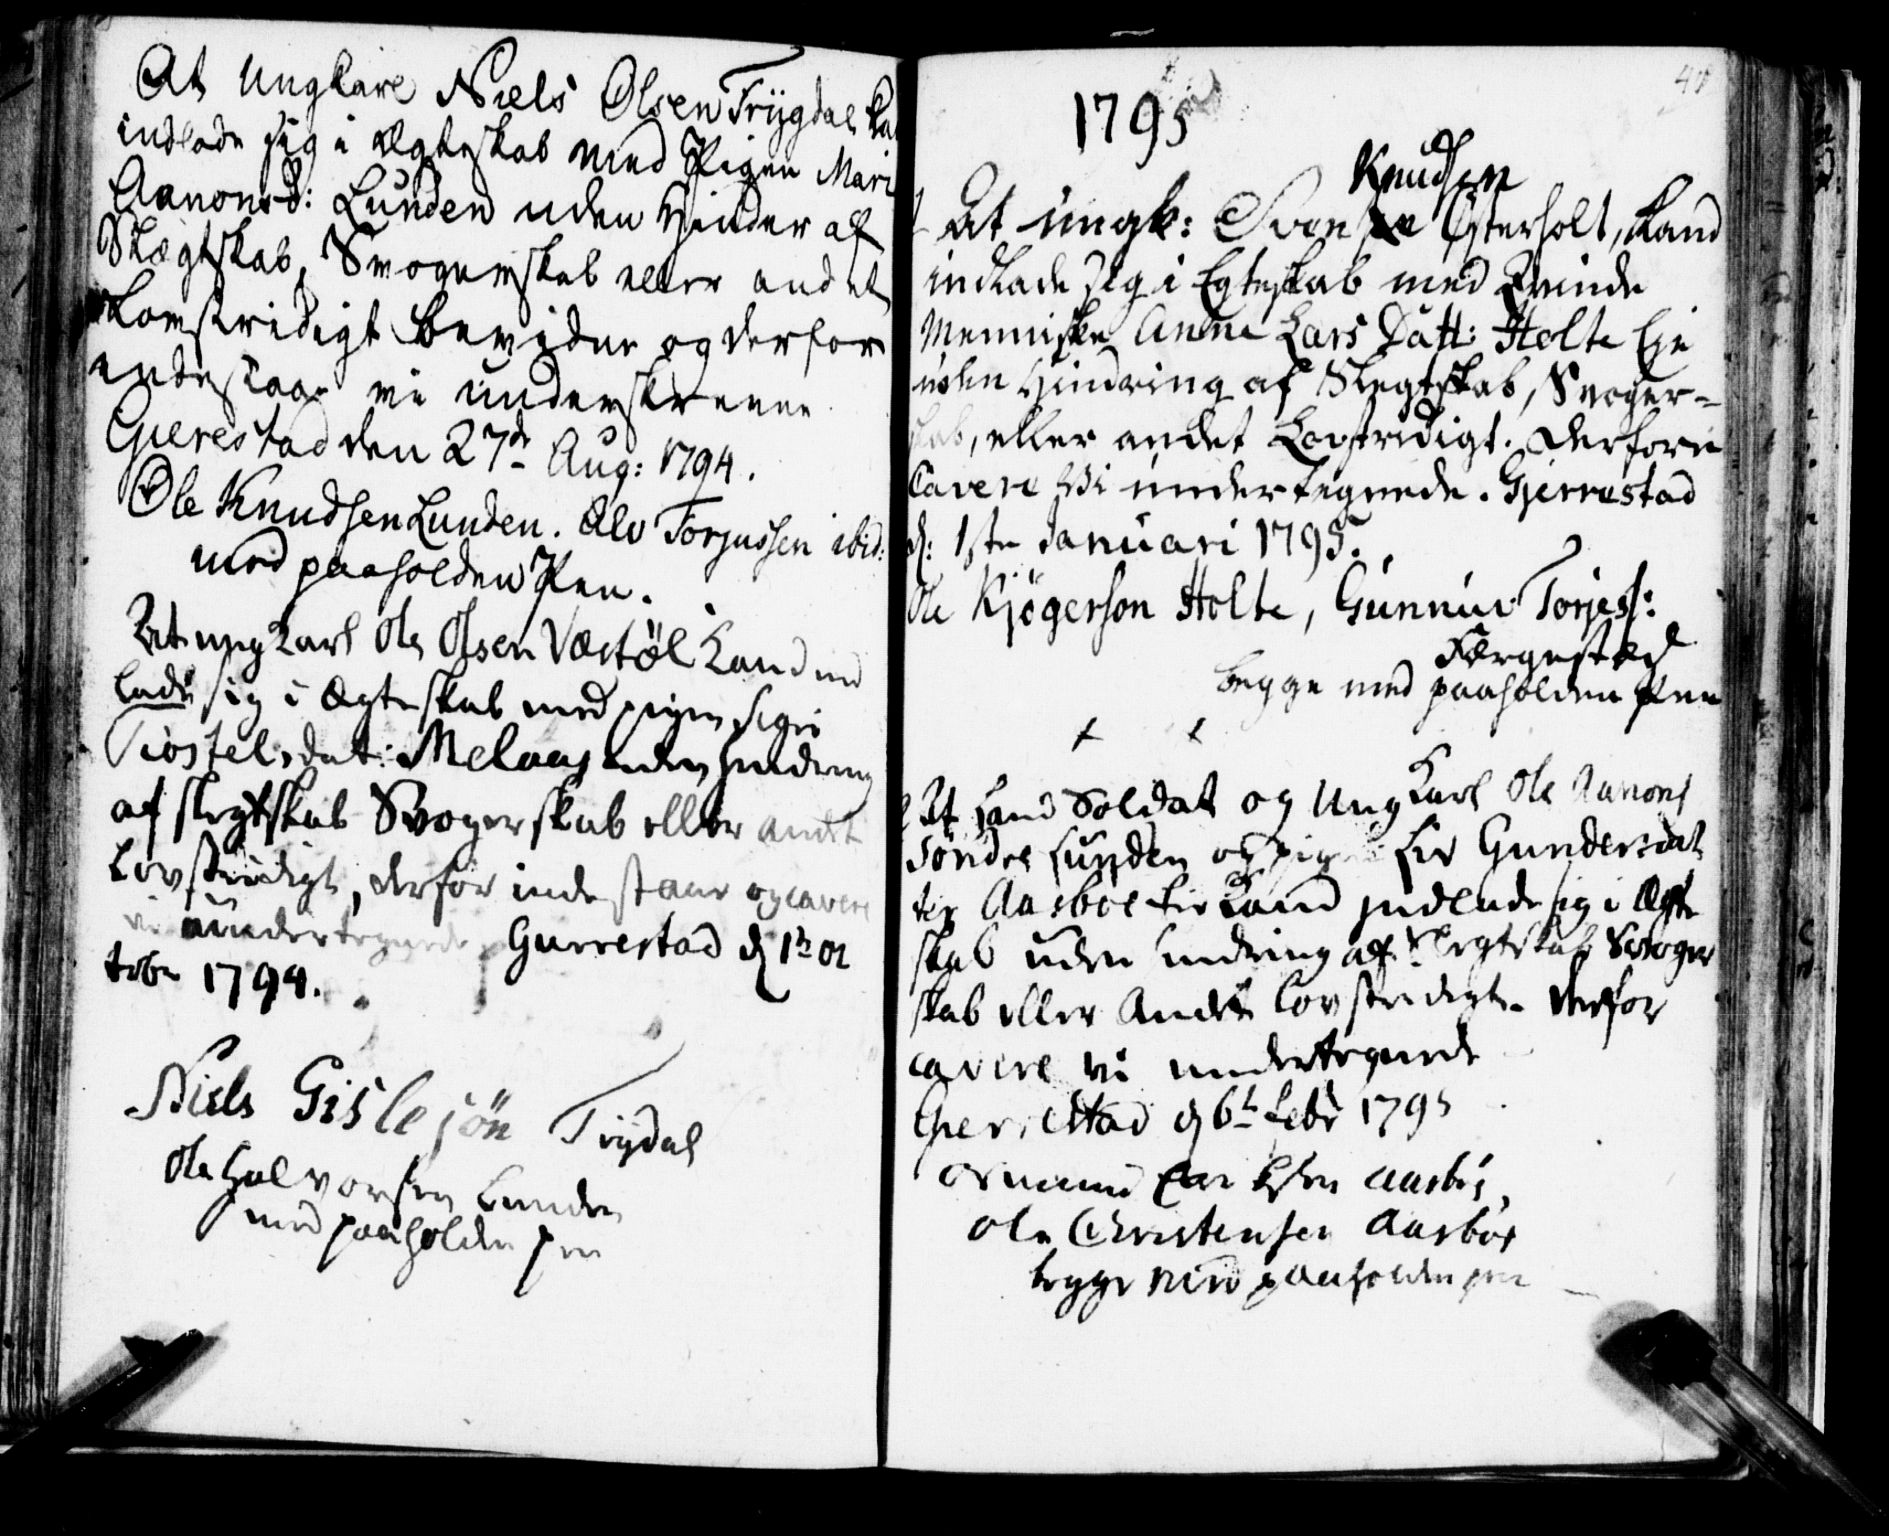 At Ungkarl Niels Olsen Trÿgdal kan
indlade sig i Ægteskab med Pigen Mari
Aanonsd: Lunden uden Hinder af
Slægtskab, Svogerskab eller andet
Lovstridigt bevidne og derfor
indestaar vi underskrevne
Gierestad den 27de Aug: 1794.
Ole Knudsen Lunden. Alv Torjussen ibid:
med paaholden Pen.
At ungkarl Ole Olsen Vestøl kand ind
lade sig i Ægteskab med pigen Sigri
Tiostelsdat: Melaas uden Hindring
af slegtskab Svogerskab eller andet
Lovstridigt, derfor indestaar og cavere
vi undertegnede Gierrestad d 1te Oc
tobr 1794.
Niels Gislesøn Trÿdal
Ole Halvorsen Lunden
med paaholden pen
40
1795
Knudsen
At ungk: Sven Østerholt, kand
indlade sig i Egteskab med Qvinde
Menniske Anne Lars Datt: Holte Eje
uden Hindring af Slegtskab, Svoger=
skab, eller andet Lovstridigt. derfore
Cavere Vi undertegnede. Gjerrestad
d: 1ste Januari 1795.
Ole Kjøgerson Holte, Gunnuv Torjess:
Færgestad
begge med paaholden Pen
At Land Soldat og Ung Karl Ole Aanons
Søndre Lunden og pigen Liv Gundersdat
ter Aasbøe Eie Kand indlade sig i Ægte
skab uden hindring af Slegtskab Svoger
skab eller Andet lovstridigt. derfor
cavere vi undertegnede
Gierrestad d 6te Febr 1795
Aasbøe,
Ole Christensen Aasbøe
begge med paaholden pen